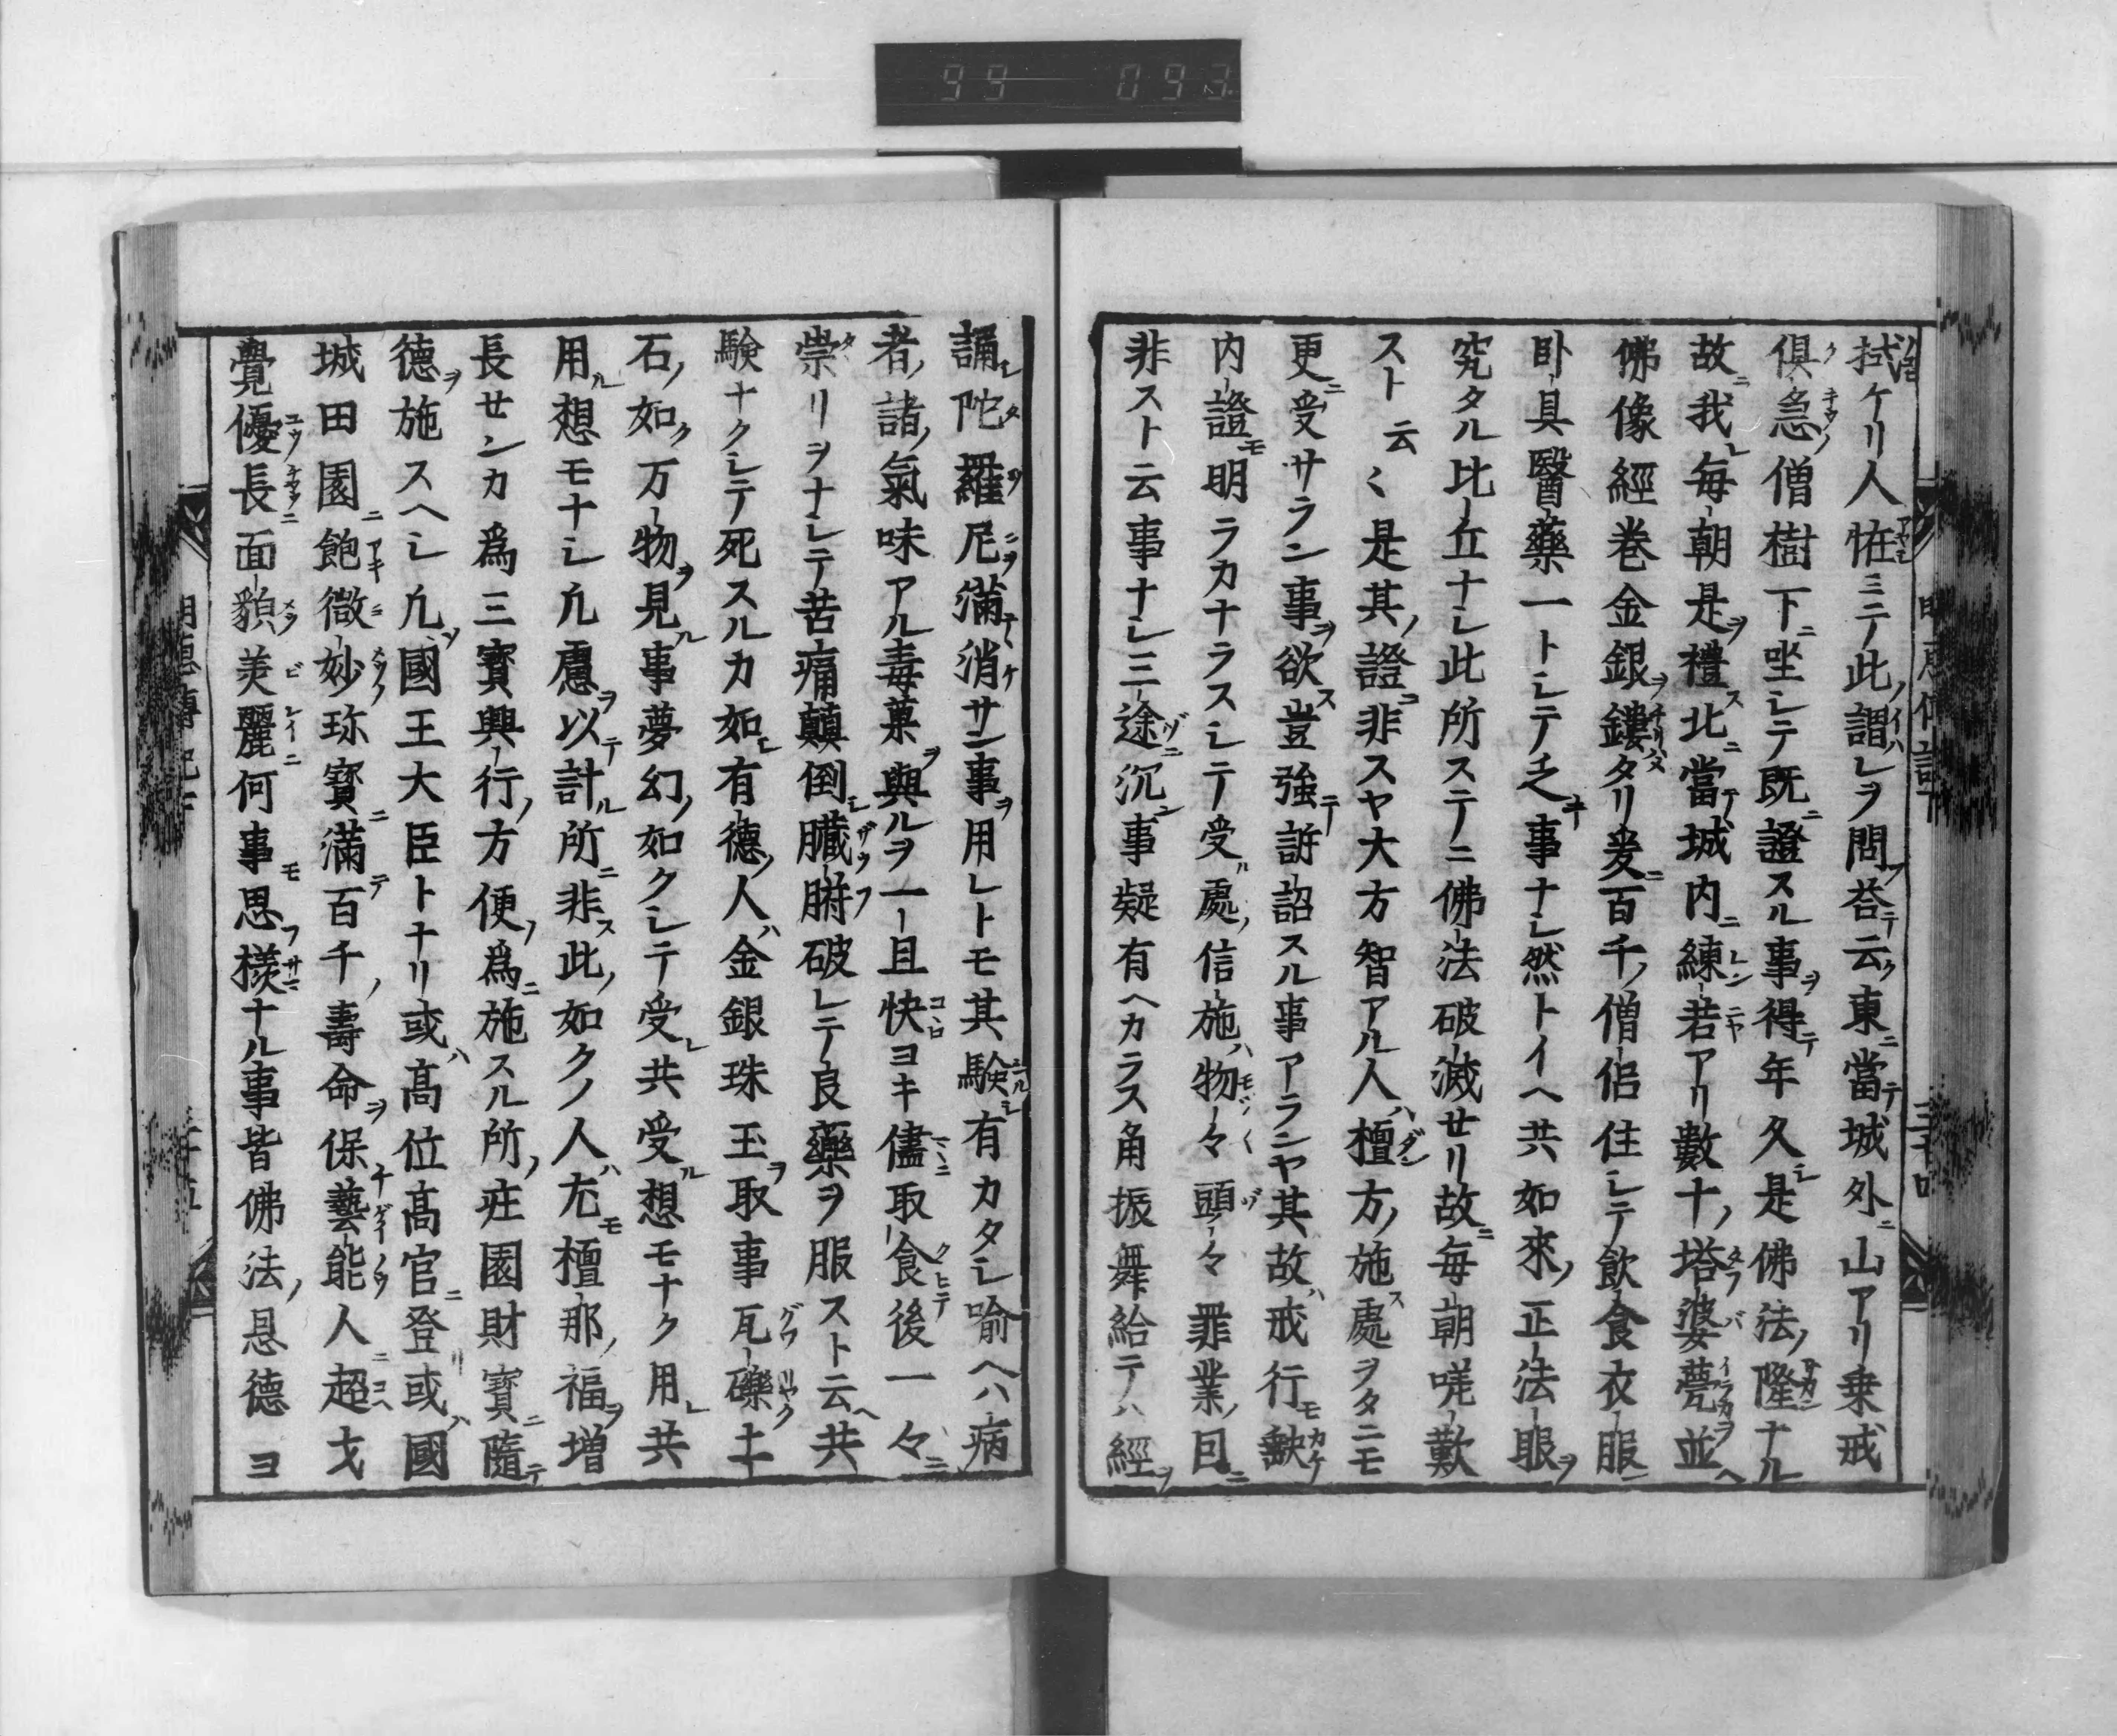 99 093
拭ケリ人恠ミテ此謂レヲ問荅テ云ク東ニ當テ城外ニ山アリ乗戒
俱ク急ノ僧樹下ニ坐シテ既ニ證スル事ヲ得テ年久シ是佛法ノ隆ナル
故ニ我レ毎朝是ヲ禮ス北ニ當テ城内ニ練若アリ數十ノ塔婆甍ヲ並ヘ
佛像經巻金銀ヲ鏤タリ爰ニ百千ノ僧侶住シテ飲食衣服
卧具醫藥一トシテ乏キ事ナシ然トイヘ共如來ノ正法眼ヲ
究タル比丘ナシ此所ステニ佛法破滅せリ故ニ毎朝嗟歎
スト云〱是其ノ證コ非スヤ大方智アル人ハ檀方ノ施ス處ヲタニモ
更ニ受サラン事ヲ欲ス豈強テ訴詔スル事アランヤ其故ハ戒行モ缺ケ
内證モ明ラカナラスシテ受ル處ノ信施ハ物々頭々罪業ノ囙ニ
非スト云事ナシ三途ニ沉ン事疑有ヘカラス角振舞給テハ經ヲ
明恵傳記下 三十四
誦シ陀羅尼ヲ滿テ消サン事ヲ用レトモ其驗シ有カタシ喻ヘハ病
者ノ諸ノ氣味アル毒菓ヲ與ルヲ一且快ヨキ儘ニ取食テ後一々ニ
崇リヲナシテ苦痛顛倒シ臓腑破レテ良藥ヲ服スト云ヘ共
驗ナクシテ死スルカ如シ有德ノ人ハ金銀珠玉ヲ取事瓦礫土
石ノ如ク万物ヲ見ル事夢幻ノ如クシテ受レ共受ル想モナク用レ共
用ル想モナシ凢慮ヲ以テ計ル所ニ非ス此ノ如クノ人ハ尤モ檀那ノ福ヲ增
長せンカ爲三寳興行ノ方便ノ爲ニ施スル所ノ庄園財寳ニ隨テ
德ヲ施スヘシ凢ソ國王大臣トナリ或ハ髙位髙官ニ登リ或ハ國
城田園ニ飽キ微妙ノ珎寳ニ滿テ百千ノ壽命ヲ保チ藝能人ニ超エ才
覺優長ニ面貌美麗ニ何事モ思フ様ナル事皆佛法ノ恩德ヨ
明恵傳記下 三十五